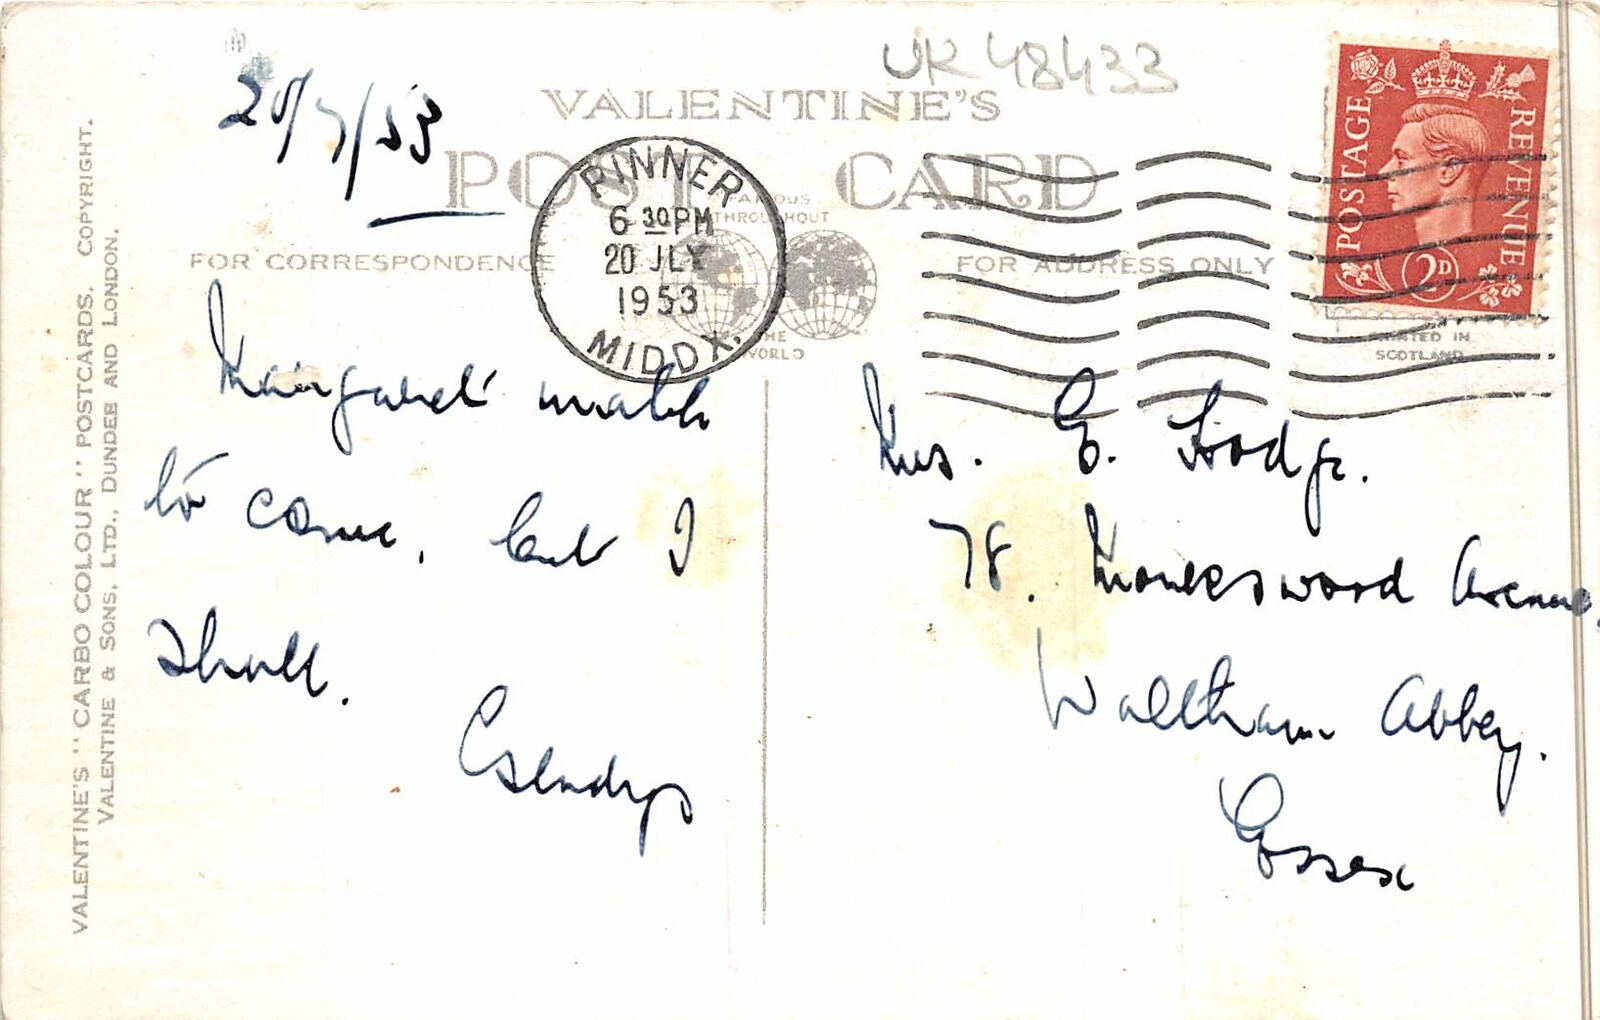 UK 48433
20/7/53
VALENTINE'S
POST CARD
FAMOUS
THROUGHOUT
THE
WORLD
FOR CORRESPONDENCE
FOR ADDRESS ONLY
PINNER
6 30 PM
20 JLY
1953
MIDDX.
POSTAGE
REVENUE
2D
PRINTED IN
SCOTLAND
Margaret
to come, but I
shall.
Gladys
Mrs. E. Hodge.
78. Monkswood Avenue,
Waltham Abbey.
Essex
VALENTINE'S "CARBO COLOUR" POSTCARDS. COPYRIGHT.
VALENTINE & SONS, LTD., DUNDEE AND LONDON.